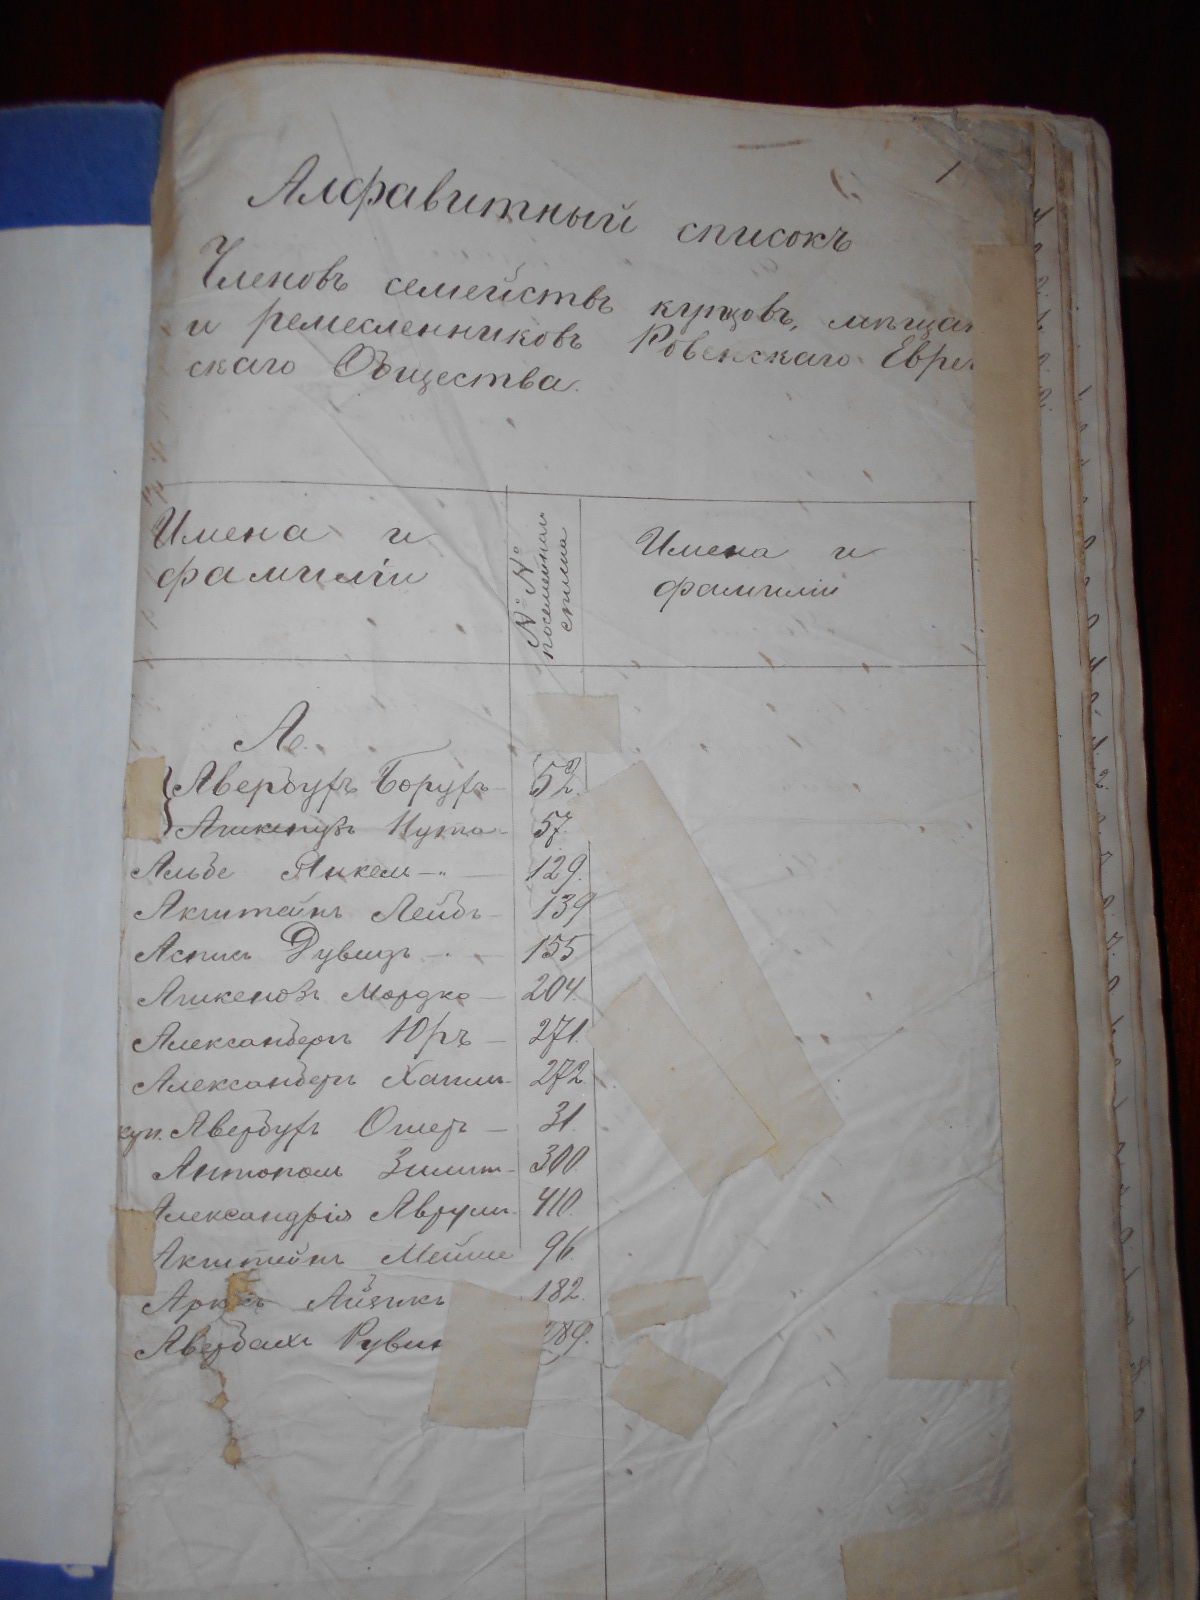 1
Алфавитный списокъ
Членовъ семействъ купцовъ, мѣщан
и ремесленниковъ Ровенскаго Еврей
скаго Общества.
Имена и
фамиліи
№№
посемейнаго
списка
Имена и
фамиліи
А.
Авербухъ Борухъ 52.
Ашкенузъ Нута 57.
Альбе Янкель 129.
Акштейнъ Лейбъ 139
Аспись Дувидъ 155
Ашкеновъ Мордко 204.
Александеръ Юръ 271.
Александеръ Хаим 272
куп. Авербухъ Ошеръ 31.
Антополь 300.
Александрія Аврум 410.
Акштейнъ Мейше 96.
Айзикъ 182.
Авербахъ Рувин 289.